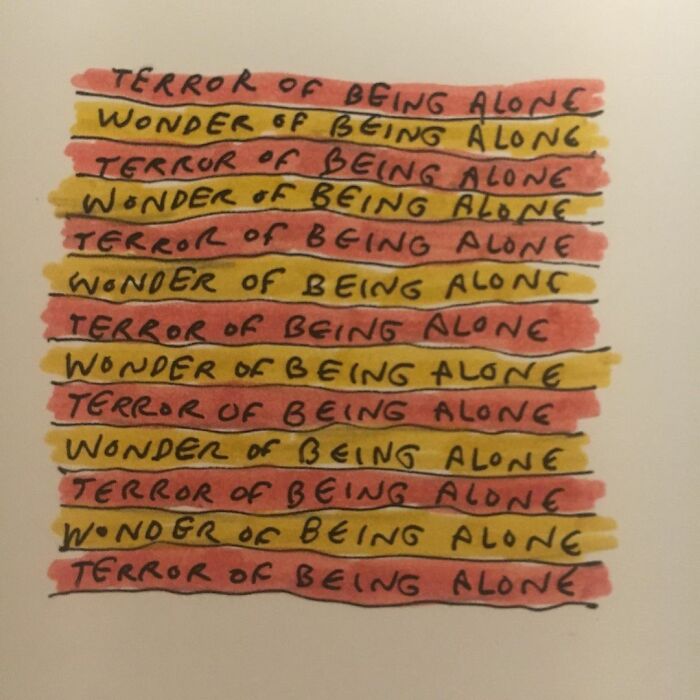 TERROR OF BEING ALONE
WONDER OF BEING ALONE
TERROR OF BEING ALONE
WONDER OF BEING ALONE
TERROR OF BEING ALONE
WONDER OF BEING ALONE
TERROR OF BEING ALONE
WONDER OF BEING ALONE
TERROR OF BEING ALONE
WONDER OF BEING ALONE
TERROR OF BEING ALONE
WONDER OF BEING ALONE
TERROR OF BEING ALONE